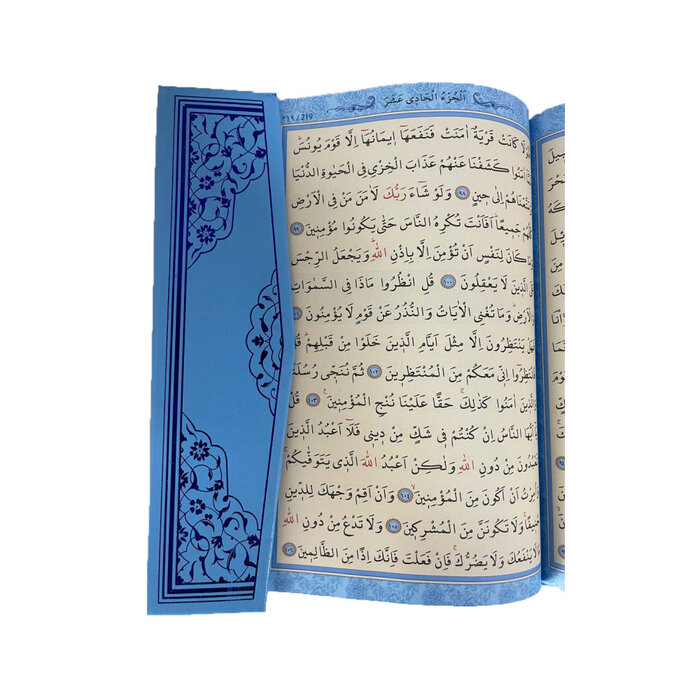 اَلْجُزْءُ الْحَادِى عَشَرَ
٢١٩ / 219
كَانَتْ قَرْيَةٌ اٰمَنَتْ فَنَفَعَهَٓا ا۪يمَانُهَٓا اِلَّا قَوْمَ يُونُسَۜ
اٰمَنُوا كَشَفْنَا عَنْهُمْ عَذَابَ الْخِزْىِ فِى الْحَيٰوةِ الدُّنْيَا
اِلٰى ح۪ينٍ ٩٨ وَلَوْ شَٓاءَ رَبُّكَ لَاٰمَنَ مَنْ فِى الْاَرْضِ
جَم۪يعًاۜ اَفَاَنْتَ تُكْرِهُ النَّاسَ حَتّٰى يَكُونُوا مُؤْمِن۪ينَ ٩٩
كَانَ لِنَفْسٍ اَنْ تُؤْمِنَ اِلَّا بِاِذْنِ اللّٰهِۜ وَيَجْعَلُ الرِّجْسَ
الَّذ۪ينَ لَا يَعْقِلُونَ ١٠٠ قُلِ انْظُرُوا مَاذَا فِى السَّمٰوَاتِ
وَمَا تُغْنِى الْاٰيَاتُ وَالنُّذُرُ عَنْ قَوْمٍ لَا يُؤْمِنُونَ ١٠١
يَنْتَظِرُونَ اِلَّا مِثْلَ اَيَّامِ الَّذ۪ينَ خَلَوْا مِنْ قَبْلِهِمْۜ قُلْ
اِنّ۪ى مَعَكُمْ مِنَ الْمُنْتَظِر۪ينَ ١٠٢ ثُمَّ نُنَجّ۪ى رُسُلَنَا
اٰمَنُوا كَذٰلِكَۚ حَقًّا عَلَيْنَا نُنْجِ الْمُؤْمِن۪ينَ۟ ١٠٣ قُلْ
النَّاسُ اِنْ كُنْتُمْ ف۪ى شَكٍّ مِنْ د۪ين۪ى فَلَٓا اَعْبُدُ الَّذ۪ينَ
مِنْ دُونِ اللّٰهِ وَلٰكِنْ اَعْبُدُ اللّٰهَ الَّذ۪ى يَتَوَفّٰيكُمْۚ
اَنْ اَكُونَ مِنَ الْمُؤْمِن۪ينَۙ ١٠٤ وَاَنْ اَقِمْ وَجْهَكَ لِلدّ۪ينِ
وَلَا تَكُونَنَّ مِنَ الْمُشْرِك۪ينَ ١٠٥ وَلَا تَدْعُ مِنْ دُونِ اللّٰهِ
يَنْفَعُكَ وَلَا يَضُرُّكَۚ فَاِنْ فَعَلْتَ فَاِنَّكَ اِذًا مِنَ الظَّالِم۪ينَ ١٠٦